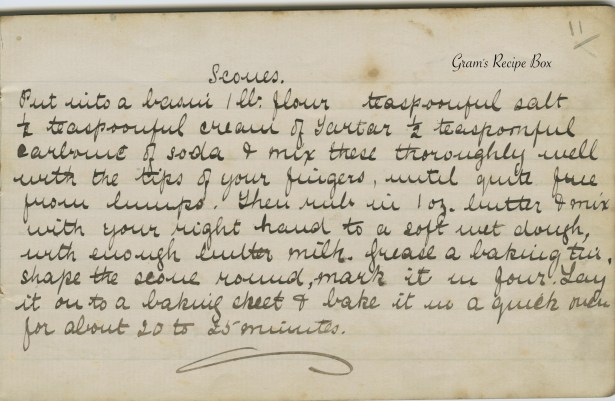 11
Gram's Recipe Box
Scones.
Put into a basin 1 lb. flour teaspoonful salt
½ teaspoonful cream of Tartar ½ teaspoonful
carbonic of soda & mix these thoroughly well
with the tips of your fingers, until quite free
from lumps. Then rub in 1 oz. butter & mix
with your right hand to a soft wet dough,
with enough butter milk. Grease a baking tin,
shape the scone round, mark it in four. Lay
it on to a baking sheet & bake it in a quick oven
for about 20 to 25 minutes.